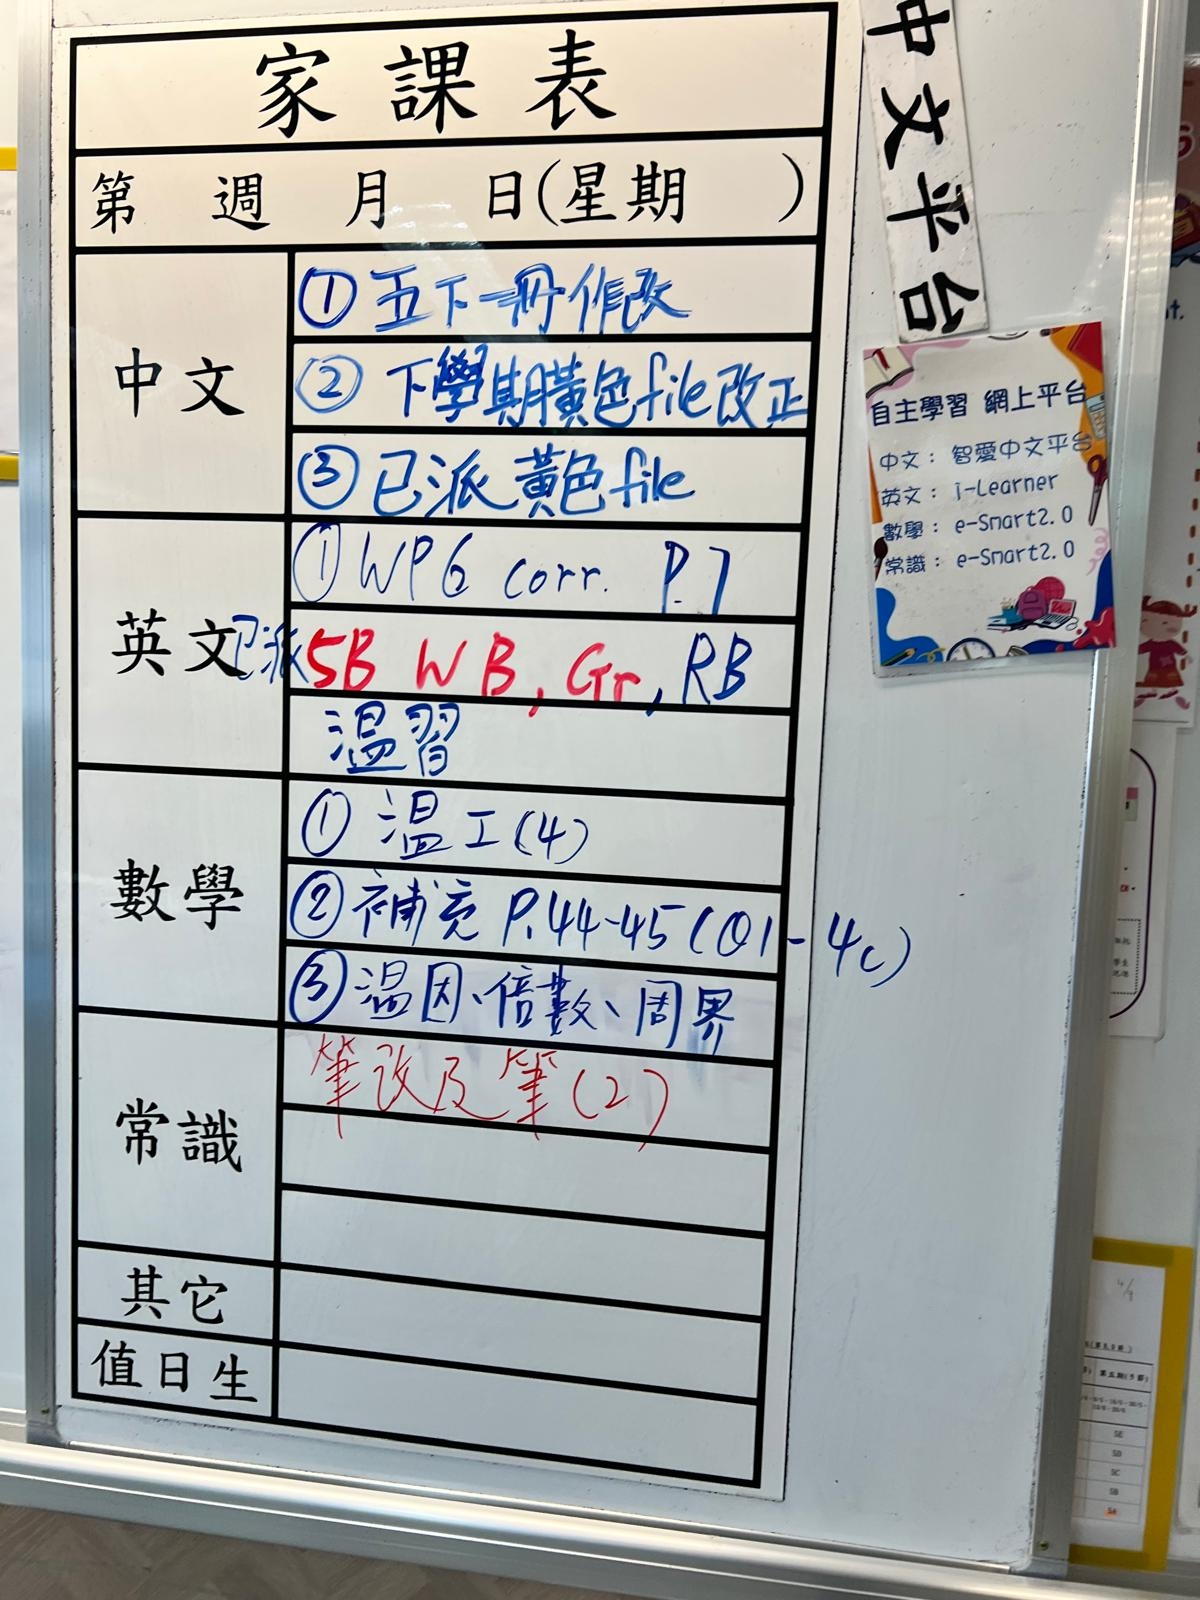 家課表
第 週 月 日(星期 )
中文
① 五下一冊作改
② 下學期黃色file改正
③ 已派黃色file
英文
① WP6 corr. P.7
已派5B WB, Gr, RB
温習
數學
① 温工(4)
② 補充 P.44-45 (Q1-4c)
③ 温因、倍數、周界
常識
筆改及筆(2)
其它
值日生
中文平台
自主學習 網上平台
中文： 智愛中文平台
英文： i-Learner
數學： e-Smart2.0
常識： e-Smart2.0
4/9
第五期(5節)
5E
5D
5C
5B
5A